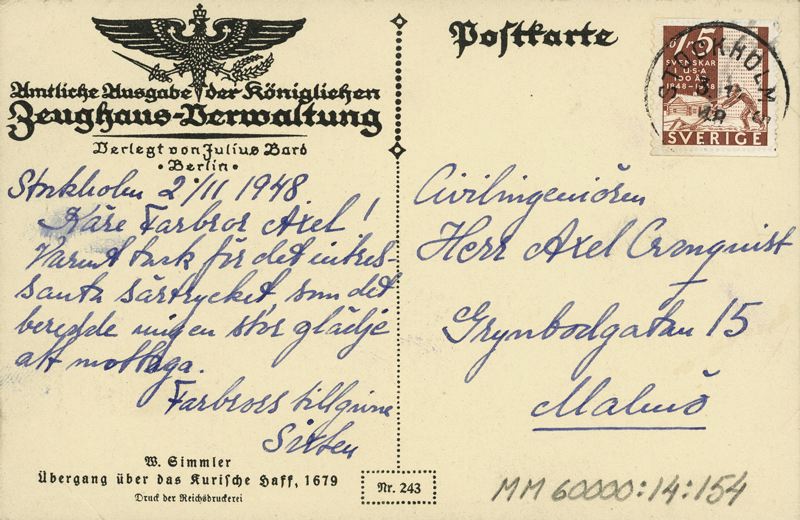 Amtliche Ausgabe der Königlichen
Zeughaus-Verwaltung
Verlegt von Julius Bard
• Berlin •
Postkarte
SVENSKAR
I USA
100 ÅR
1948
SVERIGE
STOCKHOLM
Stockholm 2/11 1948
Käre Farbror Axel!
Varmt tack för det intres-
santa särtrycket, som det
beredde mig en stor glädje
att mottaga.
Farbrors tillgivne
Sixten
Civilingeniören
Herr Axel Cronquist
Grynbodgatan 15
Malmö
W. Simmler
Übergang über das Kurische Haff, 1679
Druck der Reichsdruckerei
Nr. 243
MM 60000:14:154